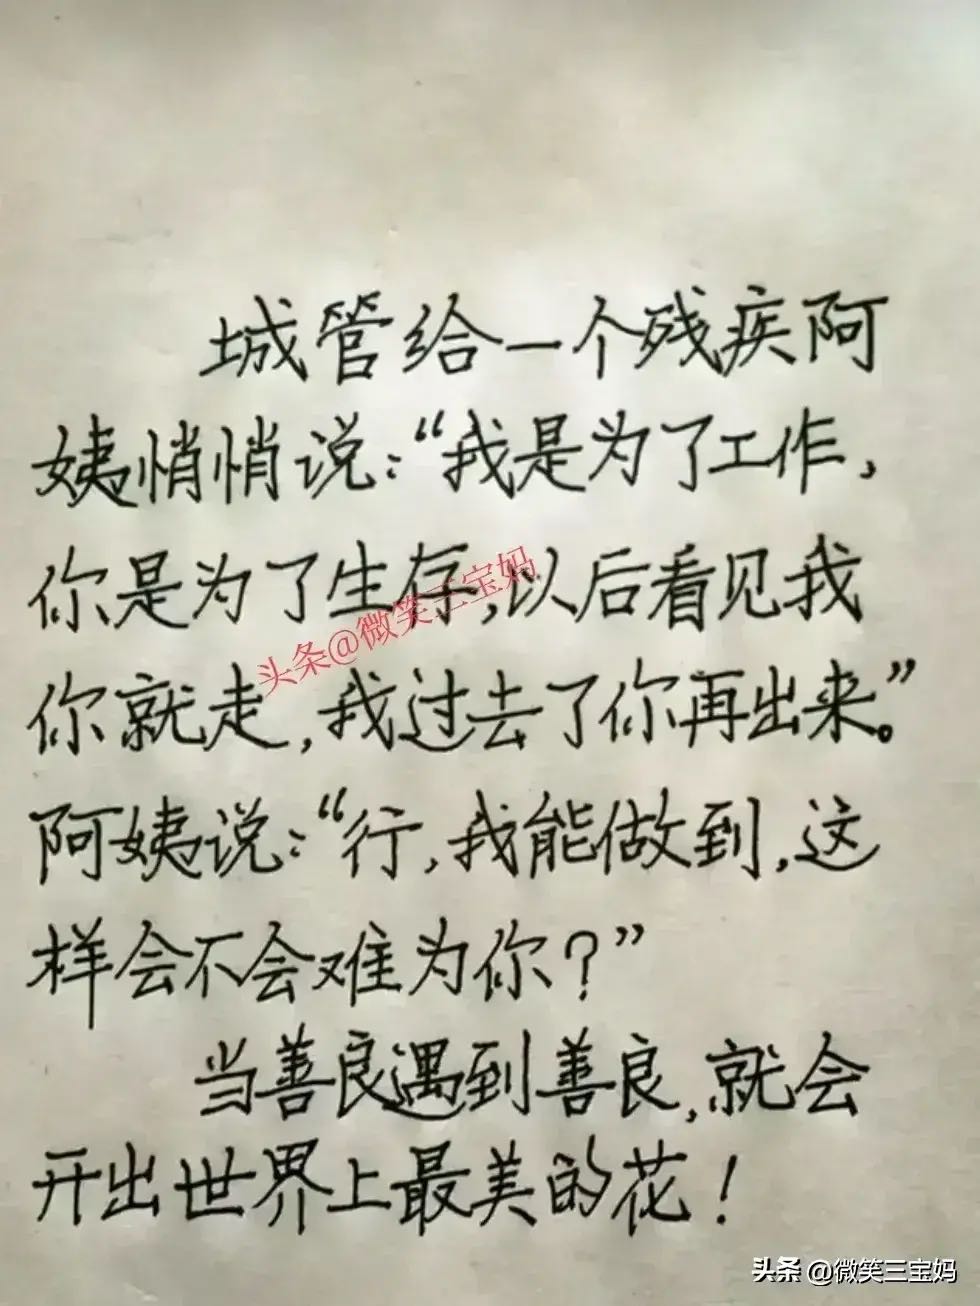 城管给一个残疾阿
姨悄悄说:“我是为了工作,
你是为了生存,以后看见我
你就走,我过去了你再出来。”
阿姨说:“行,我能做到,这
样会不会难为你?”
当善良遇到善良,就会
开出世界上最美的花!
头条@微笑三宝妈
头条 @微笑三宝妈